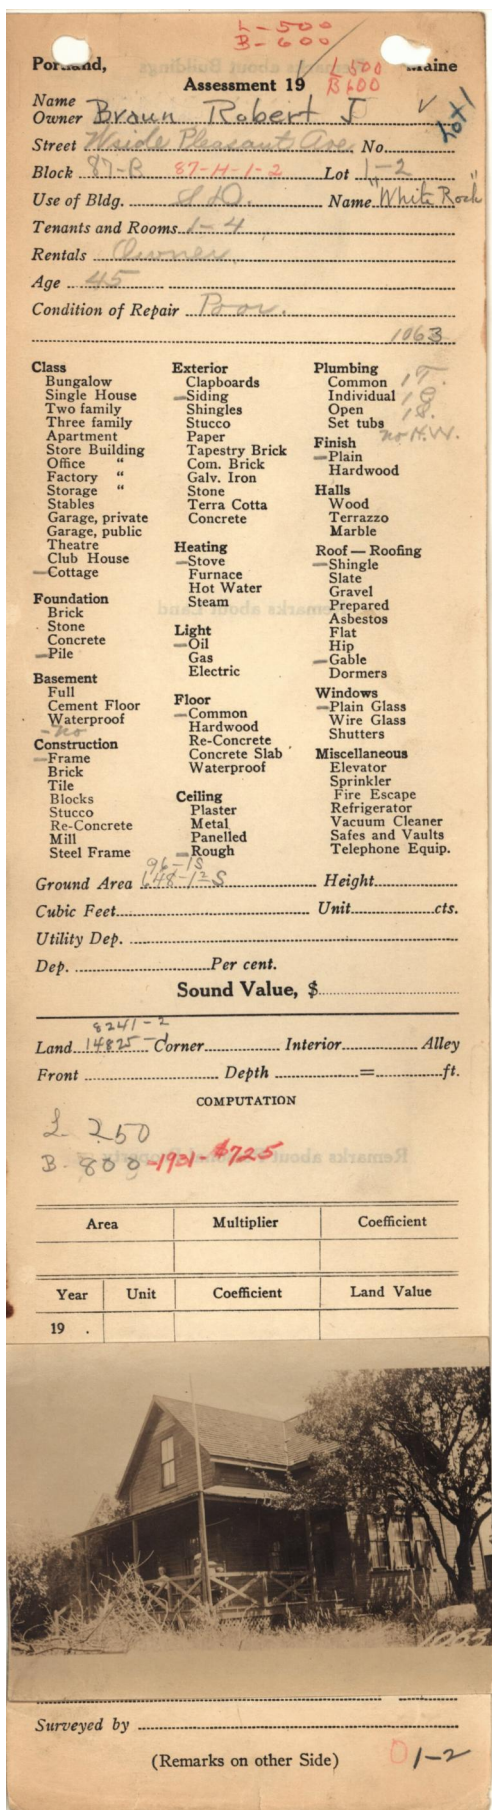 L-500
B-600
L 500
B 600
Portland, Maine
Assessment 19
Name
Owner Braun Robert J
Lot 1
Street W side Pleasant Ave. No.
Block 87-B 87-H-1-2 Lot 1-2
Use of Bldg. S.D. Name "White Rock"
Tenants and Rooms 1-4
Rentals Owner
Age 45
Condition of Repair Poor.
1063
Class
Bungalow
Single House
Two family
Three family
Apartment
Store Building
Office "
Factory "
Storage "
Stables
Garage, private
Garage, public
Theatre
Club House
Cottage
Foundation
Brick
Stone
Concrete
Pile
Basement
Full
Cement Floor
Waterproof
no
Construction
Frame
Brick
Tile
Blocks
Stucco
Re-Concrete
Mill
Steel Frame
Exterior
Clapboards
Siding
Shingles
Stucco
Paper
Tapestry Brick
Com. Brick
Galv. Iron
Stone
Terra Cotta
Concrete
Heating
Stove
Furnace
Hot Water
Steam
Light
Oil
Gas
Electric
Floor
Common
Hardwood
Re-Concrete
Concrete Slab
Waterproof
Ceiling
Plaster
Metal
Panelled
Rough
Plumbing
Common 1 T.
Individual
Open 1 S.
Set tubs no H.W.
Finish
Plain
Hardwood
Halls
Wood
Terrazzo
Marble
Roof — Roofing
Shingle
Slate
Gravel
Prepared
Asbestos
Flat
Hip
Gable
Dormers
Windows
Plain Glass
Wire Glass
Shutters
Miscellaneous
Elevator
Sprinkler
Fire Escape
Refrigerator
Vacuum Cleaner
Safes and Vaults
Telephone Equip.
96-1S
Ground Area 648-1½S Height
Cubic Feet Unit cts.
Utility Dep.
Dep. Per cent.
Sound Value, $
8241-2
Land 14825-1 Corner Interior Alley
Front Depth = ft.
COMPUTATION
L. 250
B- 800 -1931- $725
Area Multiplier Coefficient
Year Unit Coefficient Land Value
19 .
1063
Surveyed by
(Remarks on other Side)
O 1-2